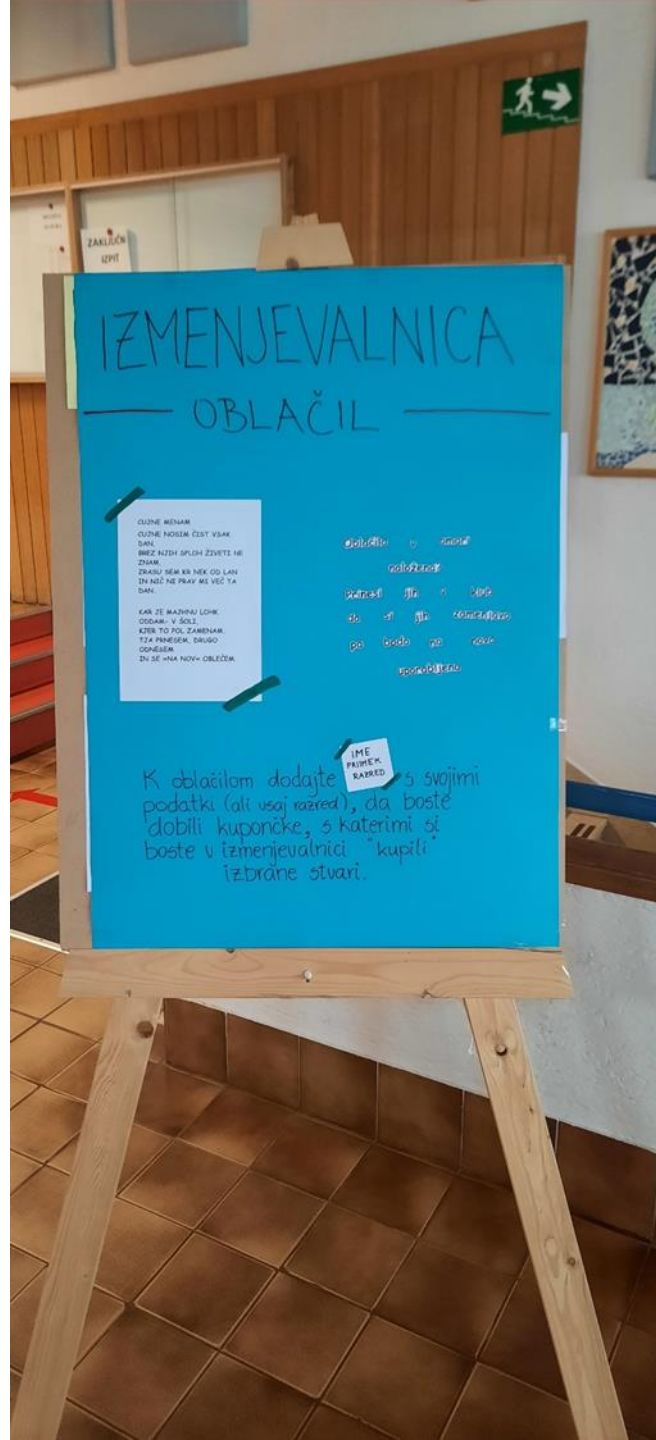 ZAKLJUČN
IZPIT
IZMENJEVALNICA
OBLAČIL
CUJNE MENAM
CUJNE NOSIM ČIST VSAK
DAN,
BREZ NJIH SPLOH ŽIVETI NE
ZNAM.
ZRASU SEM KR NEK OD LAN
IN NIČ NI PRAV MI VEČ TA
DAN.
KAR JE MAJHNU LOHK
ODDAM- V ŠOLI,
KJER TO POL ZAMENAM.
TJA PRNESEM, DRUGO
ODNESEM
IN SE »NA NOV« OBLEČEM
Oblačila v omari
naložena?
Prinesi jih v klub
da si jih zamenjavo
pa bodo na novo
uporabljena
IME
PRIIMEK
RAZRED
K oblačilom dodajte s svojimi
podatki (ali vsaj razred), da boste
dobili kupončke, s katerimi si
boste v izmenjevalnici "kupili"
izbrane stvari.